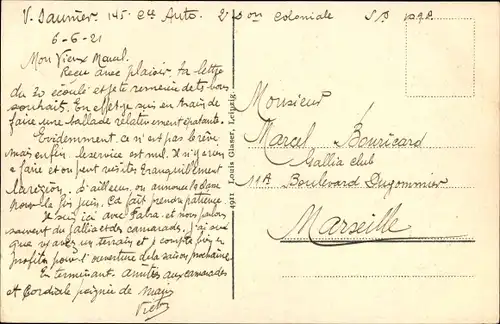 V. Saunier 145 Cie Auto. 2e Don Coloniale SP
6-6-21
Mon Vieux
Reçu avec plaisir ta lettre
du 20 écoulé et je te remercie de tes bons
souhaits. En effet je suis en train de
faire une ballade relativement gratuite.
Evidemment ce n'est pas le rêve
mais enfin le service est nul. Il n'y a rien
a faire et on peut visiter tranquillement
la région. D'ailleurs on annonce la classe
pour la fin juin. Ca fait prendre patience.
Je suis ici avec Fabra et nous parlons
souvent du Gallia et des camarades. J'ai su
que vous avez un terrain et je compte bien en
profiter pour l'ouverture de la saison prochaine.
En terminant amitiés aux camarades
et cordiale poignée de main
Vict
1911 Louis Glaser, Leipzig.
Monsieur
Marcel Bouricard
Gallia club
11A Boulevard Dugommier
Marseille